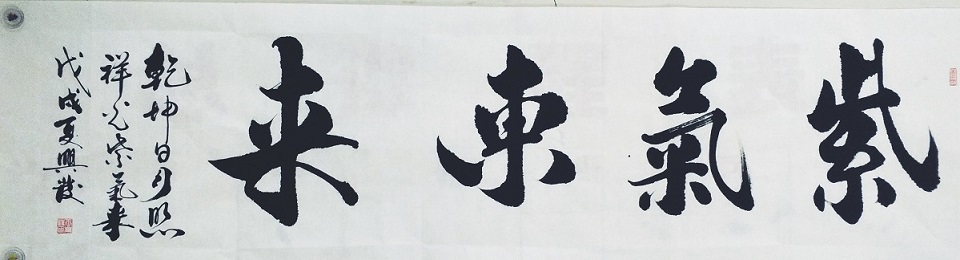 紫氣東来
乾坤日月照
祥光紫氣來
戊戌夏興發